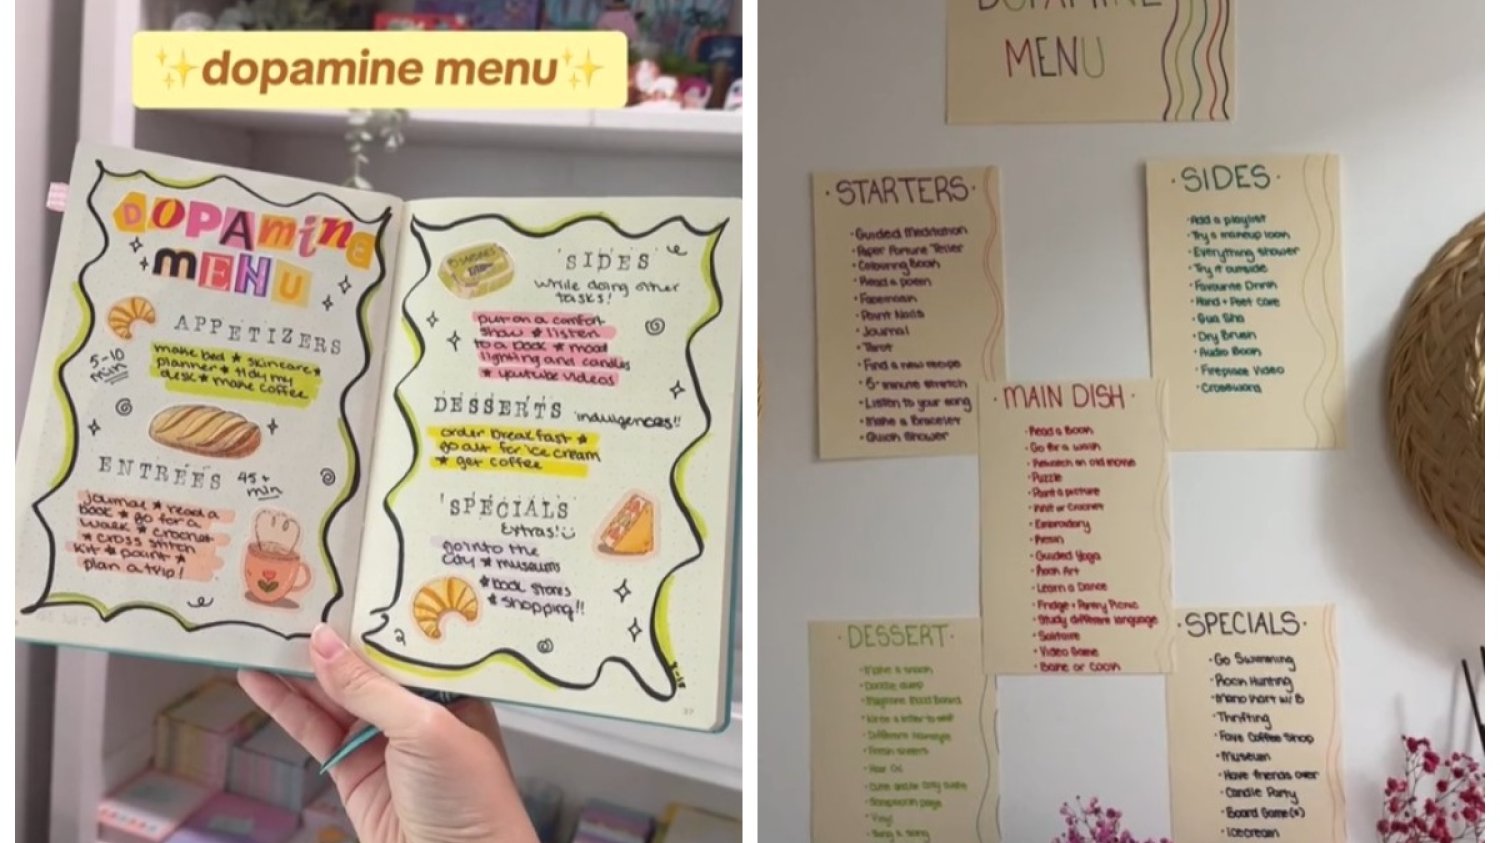 ✨dopamine menu✨
DOPAMINE
MENU
APPETIZERS
5-10
min
make bed ★ skincare ★
planner ★ tidy my
desk ★ make coffee
ENTRÉES
45+
min
journal ★ read a
book ★ go for a
walk ★ crochet
★ cross stitch
kit ★ paint ★
plan a trip!
SIDES
while doing other
tasks!
put on a comfort
show ★ listen
to a book ★ mood
lighting and candles
★ youtube videos
DESSERTS
indulgences!!
order breakfast ★
go out for ice cream
★ get coffee
SPECIALS
Extras!
go into the
city ★ museums
★ book stores
★ shopping!!
37
DOPAMINE
MENU
· STARTERS ·
· Guided Meditation
· Paper Fortune Teller
· Colouring Book
· Read a poem
· Facemask
· Paint Nails
· Journal
· Tarot
· Find a new recipe
· 5-minute stretch
· Listen to your song
· Make a Bracelet
· Quick Shower
· SIDES ·
· Add a playlist
· Try a makeup look
· Everything Shower
· Try it outside
· Favourite Drink
· Hand + Feet care
· Gua Sha
· Dry Brush
· Audio Book
· Fireplace Video
· Crossword
· MAIN DISH ·
· Read a Book
· Go for a walk
· Rewatch an old movie
· Puzzle
· Paint a picture
· Knit or Crochet
· Embroidery
· Resin
· Guided Yoga
· Rock Art
· Learn a Dance
· Fridge + Pantry Picnic
· Study different language
· Solitaire
· Video Game
· Bake or Cook
· DESSERT ·
· Make a snack
· Write a letter to self
· Different hairstyle
· Fresh sheets
· Hair Oil
· Scrapbook page
· Vinyl
· Sing a song
· SPECIALS ·
· Go Swimming
· Rock Hunting
· Mario Kart w/ B
· Thrifting
· Fave Coffee Shop
· Museum
· Have friends over
· Candle Party
· Board Game(s)
· Icecream